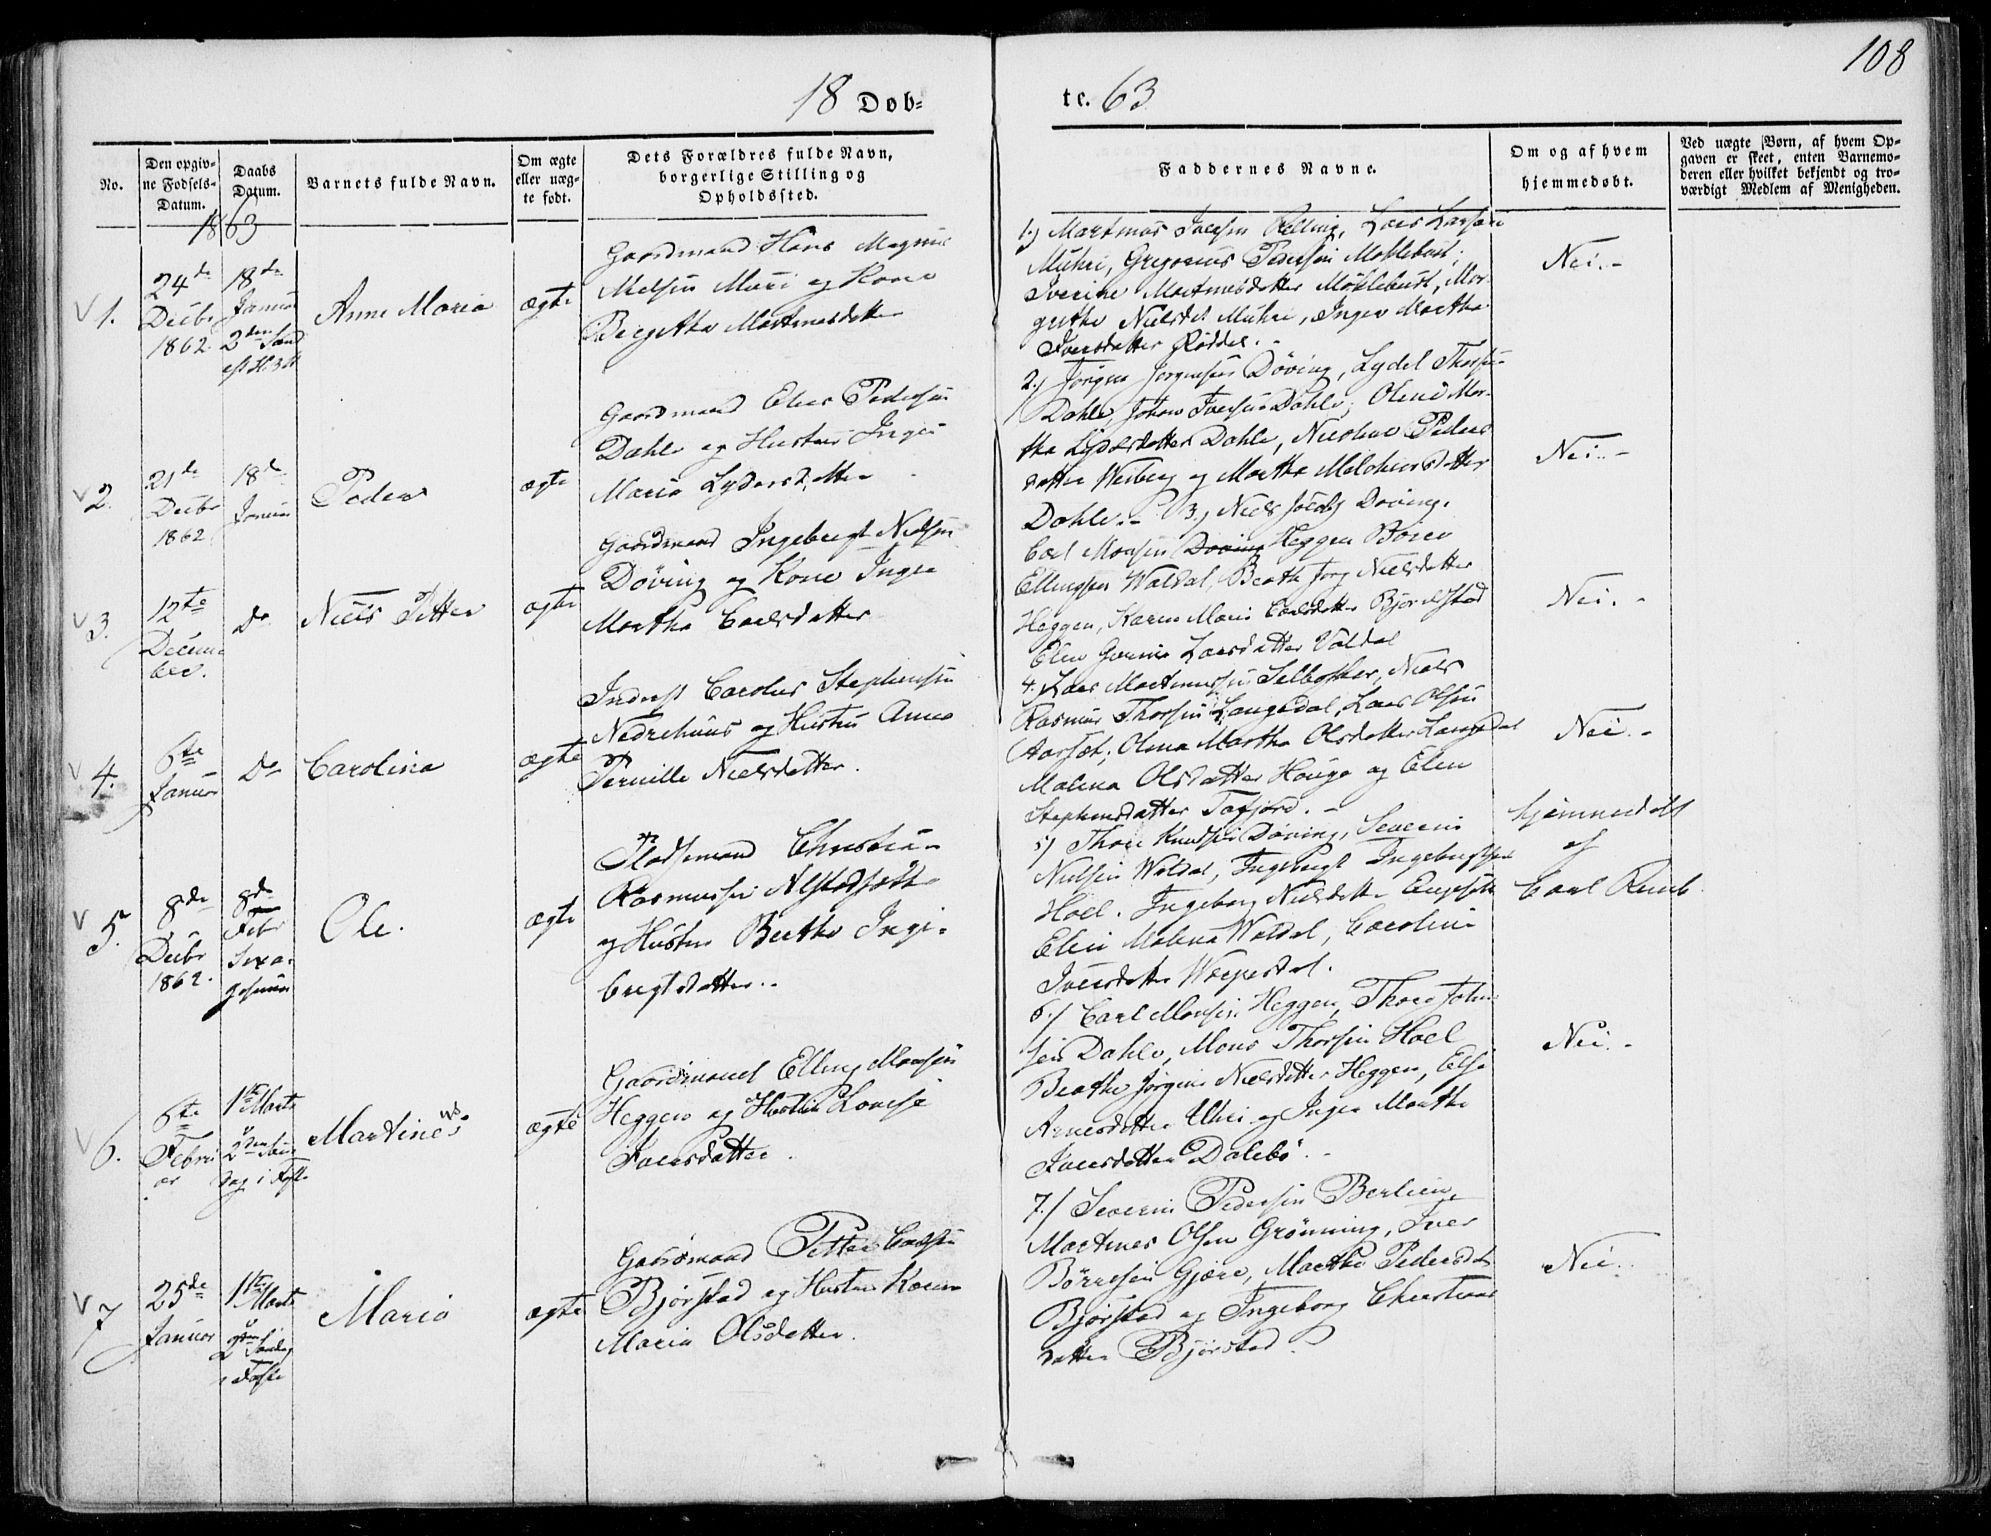 108
18 Døb-
te. 63
No.
Den opgiv-
ne Fødsels-
Datum.
Daabs
Datum.
Barnets fulde Navn.
Om ægte
eller uæg-
te født.
Dets Forældres fulde Navn,
borgerlige Stilling og
Opholdssted.
Faddernes Navne.
Om og af hvem
hjemmedøbt.
Ved uægte Børn, af hvem Op-
gaven er skeet, enten Barnemo-
deren eller hvilket bekjendt og tro-
værdigt Medlem af Menigheden.
1863
1.
24de
Decbr
1862.
18de
Januar
Anne Maria
ægte
Gaardmand Hans Magnus
Nielsen Muri og Kone
Birgithe Martinusdatter
1.) Martinus Iversen Relling, Lars Larsen
Muhri, Gregorius Pedersen Møklebust;
Iverine Martinusdatter Møklebust, Mar-
grethe Nielsdt Muhri, Inger Martha
Iversdatter Rødder. -
Nei. -
2.
21de
Decbr
1862
18de
Januar
Peder
ægte
Gaardmand Elias Pedersen
Dahle og Hustru Inger
Maria Lydersdatter
2.) Jørgen Jørgensen Døving, Lydel Thorsen
Dahle, Johan Iversen Dahle; Oline Mar-
tha Lydersdatter Dahle, Nicoline Peders
datter Weiberg og Martha Melchiorsdatter
Dahle. -
Nei. -
3.
12te
Decem
ber.
Do
Niels Petter
ægte
Gaardmand Ingebrigt Nielsen
Døving og Kone Inger
Martha Carlsdatter
3.) Niels Jacobs Døving.
Carl Monsen Døving Heggen Børre
Ellingsen Waldal, Beathe Jørg Nielsdatter
Heggen, Karen Marie Carlsdatter Bjørstad
Elen Larsdatter Valdal
Nei. -
4.
6te
Januar
Do
Carolina
ægte
Inderst Carolus Stephensen
Nedrehuus og Hustru Anne
Pernille Nielsdatter.
4. Lars Martinussen Selboskar, Niels
Rasmus Thorsen Langedal, Lars Olsen
Aarset; Olina Martha Olsdatter Langedal
Malena Olsdatter Hauge og Elen
Stephensdatter Tafjord. -
Nei. -
5.
8de
Decbr
1862.
8de
Febr
Sexa
gesima
Ole.
ægte
Pladsemand Christian
Rasmussen Alstadsæth
og Hustru Berthe Inge-
brigtsdatter. -
5.) Thore Knudsen Døving, Severin
Nielsen Waldal, Ingebrigt Ingebrigtsen
Hoel. Ingeborg Nielsdatter
Elen Malena Waldal, Caroline
Iversdatter
hjemmedøbt
af
Carl
6.
6te
Febru
ar
1ste Marts
2den Søn
dag i Faste
Martinus
ægte
Gaardmand Elling Monsen
Heggen og Hustru Lovise
Iversdatter.
6.) Carl Monsen Heggen, Thore John
sen Dahle, Mons Thorsen Hoel
Beathe Jørgine Nielsdatter Heggen, Else
Arnesdatter Uhri og Inger Martha
Iversdatter Dalebø. -
Nei. -
7
25de
Januar
1ste Marts
2den Søndag
i Faste
Maria
ægte
Gaardmand Petter Carlsen
Bjørstad og Hustru Karen
Maria Olsdatter.
7.) Severin Pedersen Berlien
Martines Olsen Grønning, Iver
Børresen Gjære, Marthe Pedersdat
Bjørstad og Ingeborg Christians
datter Bjørstad.
Nei.